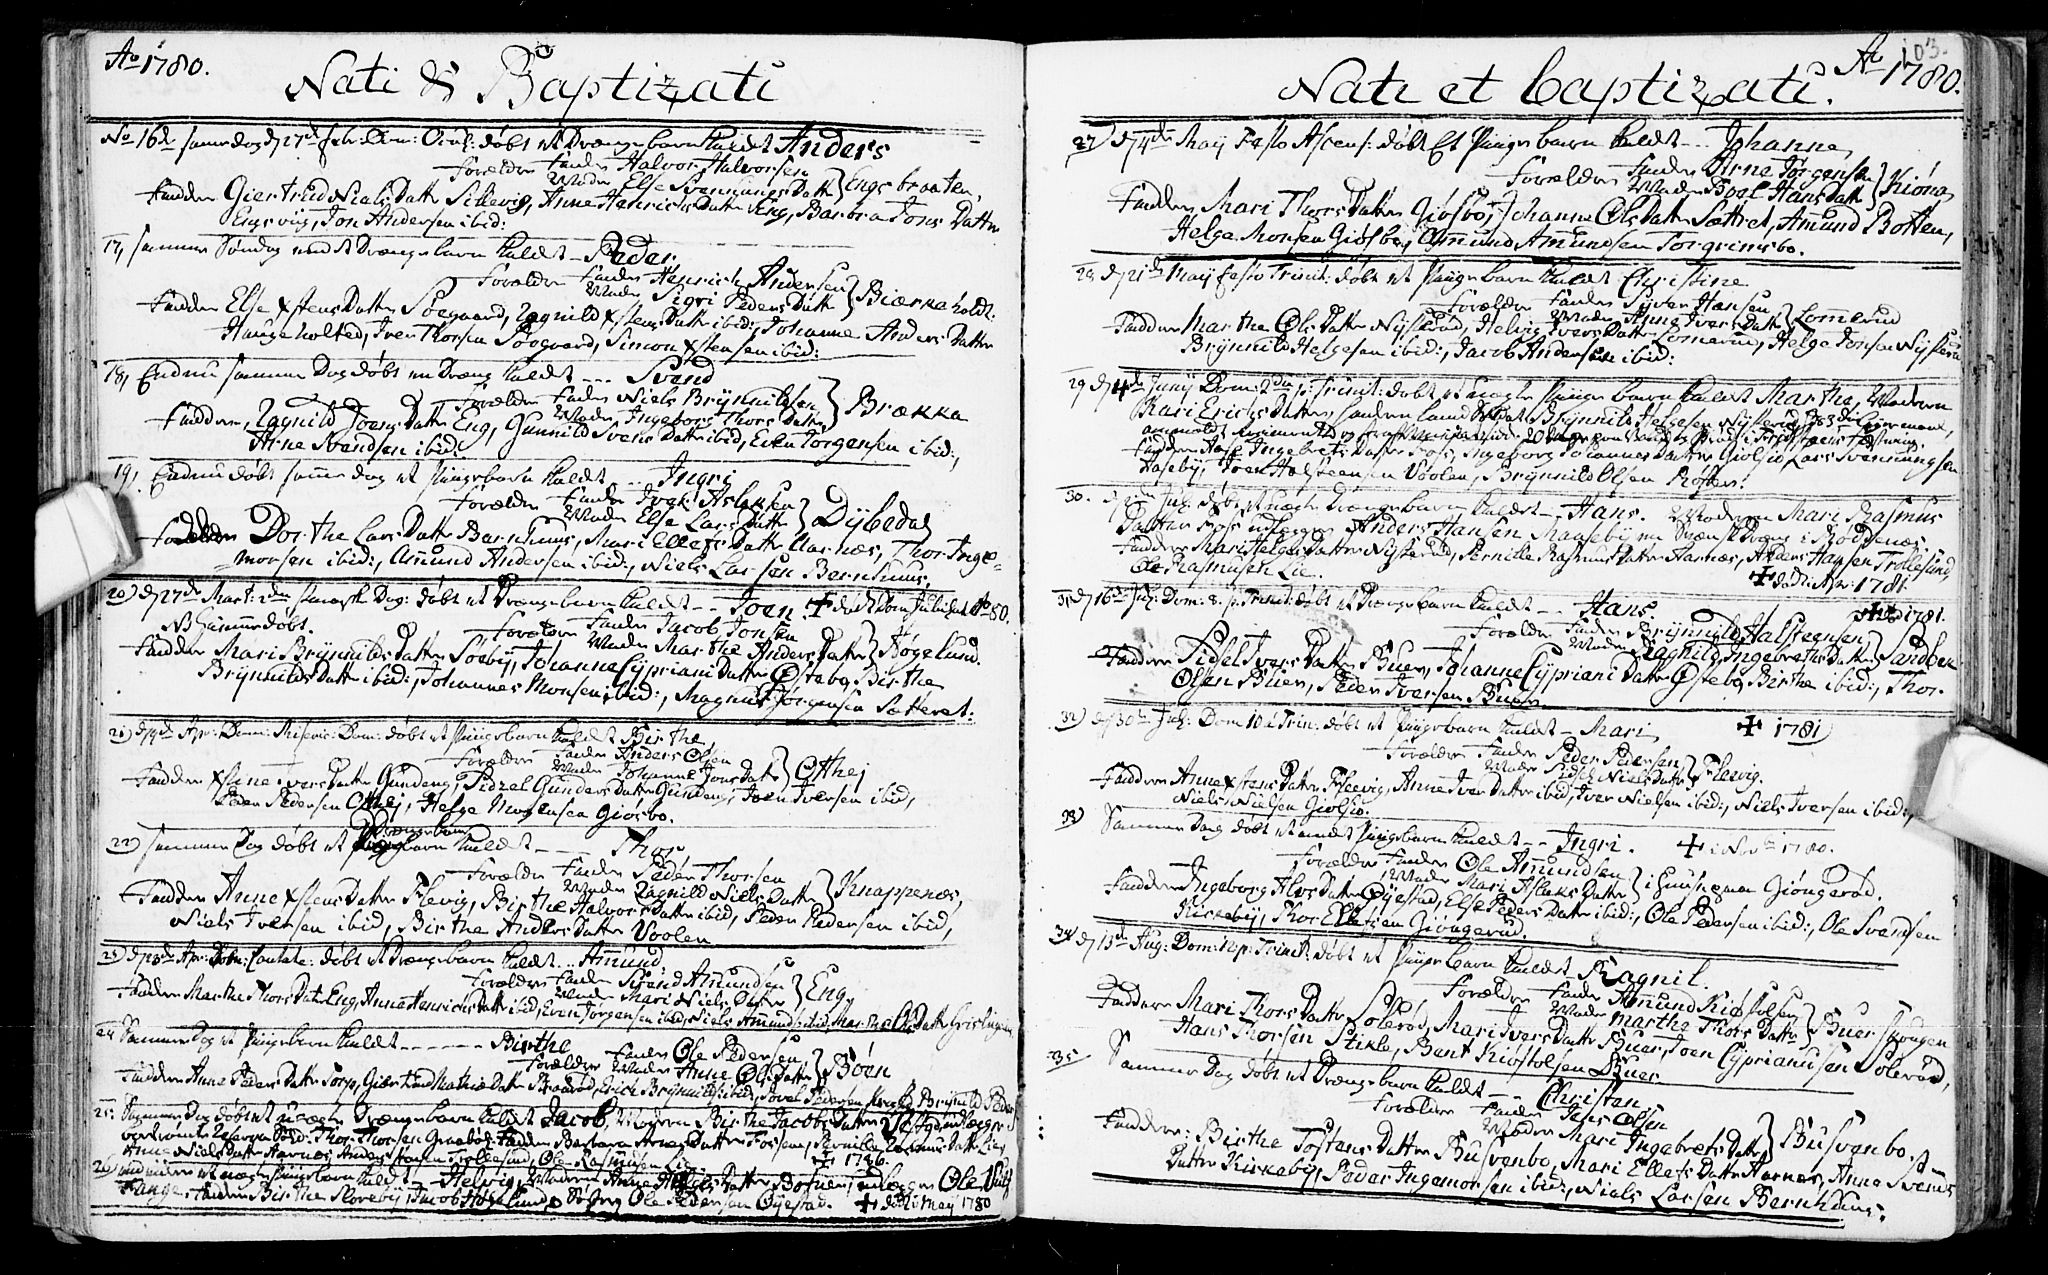 Ao 1780.
Nati & Baptizati
No 16de samme dag d 27de Febr: Dom: Oculi: døbt et Drængebarn kaldet Anders
Forældre Fader Halvor Halvorsen
Moder Else Svennungs Datter } Engsbraaten,
Faddere Giertrud Niels Datter Sillevig, Anne Henrichs Datter Eng, Barbra Jons Datter
Engsviig, Jon Andersen ibid:
17, samme Søndag et Drængebarn kaldet – Peder,
Forældre Fader Henrich Andersen
Moder Sigri Peders Datter } Biærkeholdt:
Faddere Else Xstens Datter Søegaard, Ragnild Xstens Datter ibid:, Johanne Anders Datter
Haugeholted, Iver Thorsen Søegaard, Simon Xstensen ibid:
18, Endnu samme Dag døbt en Dræng kaldet --- Svend
Forældre Fader Niels Brynnildsen
Moder Ingeborg Thors Datter } Brække
Faddere, Ragnild Joens Datter Eng, Gunnild Svens Datter ibid, Even Jørgensen ibid:,
Arne Svendsen ibid:
19, Endnu døbt samme dag et Pigebarn kaldet ... Ingri
Forældre Fader Aslaksen
Moder Else Lars Datter } Dybedal
Faddere Dorthe Lars Datter Bernhuus, Mari Ellefs Datter Aarnæs, Thor Inge-
morsen ibid:, Amund Andersen ibid:, Niels Larsen Bernhuus.
20) d 27de Mart: 2den Paaske Dag: døbt et Drængebarn kaldet -- Joen. + død Dom Jubilate Ao 80.
NB hiemmedøbt.
Forældre Fader Jacob Jonsen
Moder Marthe Anders Datter } Høgelund.
Faddere Mari Brynnilds Datter Søeby, Johanne Cypriani Datter Østebø, Birthe
Brynnilds Datter ibid:, Johannes Monsen ibid:, Magnus Jørgensen Sætteret:
21) d 9de Apr: Dom: Miseric: Dom: døbt et Pigebarn kaldet Birthe
Forældre Fader Anders Olsen
Moder Johanne Jons Datter } Otthej
Faddere Xstine Ivers Datter Gundeng, Sidzel Gunders Datter Gundeng, Joen Iversen ibid,
Peder Pedersen Otthej, Helge Mogensen Giøsbo.
22) samme Dag døbt et Drængebarn kaldet --- Thor
Forældre Fader Peder Thorsen
Moder Ragnild Niels Datter } Knappenæs,
Faddere Anne Xstens Datter Flevig, Birthe Halvors Datter ibid, Peder Pedersen ibid,
Niels Iversen ibid, Birthe Anders Datter Voolen
23) d 23de Apr: Dom: Cantate: døbt et Drængebarn kaldet .. Amund
Forældre Fader Svend Amundsen
Moder Mari Niels Datter } Eng,
Faddere Marthe Thors Datter Eng, Anne Henrichs Datter ibid, Even Jørgensen ibid, Niels Amunds: ibid, Marthe Ols Datter
24 Samme Dag et Pigebarn kaldet ------ Birthe
Forældre Fader Ole Pedersen,
Moder Anne Ols Datter } Böen
Faddere Anne Peders Datter Torp, Giertrud Datter Erich Brynnilds: ibid, Peder Pedersen Brynild Peder
25. Samme Dag døbt et uægte Drængebarn kaldet Jacob, Moderen Birthe Jacobs Datter udlægger
Sold: Thor Thorsen Faddere Barbara Arnes Datter Fossen, Pernille Rasmus Datter Lie,
Anne Niels Datter Aarnæs, Anders Hansen Trollesund, Ole Rasmusen Lie + 1786.
26) et uægte Pigebarn kaldet – Helvig, Moderen Anne Datter Botner, udlægger Ole
Fange, Faddere Birthe Floreby, Jacob Høgelund, Ole Pedersen Øyestad. + død 21 May 1780
103.
Ao 1780.
Nati et baptizati.
27) d 4de Maij Festo Ascens: døbt Et Pigebarn kaldet --- Johanne,
Forældre Fader Arne Jørgensen
Moder Boel Hans Datter } Kiønø
Faddere Mari Thors Datter Giøsbø, Johanne Ols Datter Sættret, Amund Botten,
Helge Monsen Giøsbø, Omund Amundsen Torgrimsbo.
28 d 21de Maij Festo Trinit: døbt et Pigebarn kaldet Christine
Forældre Fader Syver Hansen,
Moder Anne Ivers Datter } Lomerud
Faddere Marthe Ols Datter Nysterud, Helvig Ivers Datter Lomerud, Helge Jonsen Nysterud
Brynnild Helgesen ibid:, Jacob Andersen ibid:
29 d 4de Junij Dom: 2den p: Trinit: døbt et uægte Pigebarn kaldet Marthe, Moderen
Kari Erichs Datter, Brynnild Helgesen Nysterud,
Faddere Aase Ingebrets Datter Foss, Ingeborg Johannes Datter Giølsiø, Lars Svennungsen
Haseby, Joen Halsteensen Voolen, Brynnild Olsen
30. d Jul: døbt et uægte Drængebarn kaldet – Hans. Moderen Mari Rasmus
Datter Foss udlægger Anders Hansen en Svensk Dreng i Bøddenæs,
Faddere Mari Helges Datter Nysterud, Pernille Rasmus Datter Aarnæs, Anders Hansen Trollesund,
Ole Rasmusen Lie. + død: Apr: 1781.
31 d 16de Jul: Dom: 8. p. Trinit: døbt et Drængebarn kaldet -- Hans. + 1781.
Forældre Fader Brynnild Halsteensen
Moder Ragnild Ingebreths Datter } Sandbek
Faddere Sidsel Ivers Datter Buer, Johanne Cypriani Datter Østebø, Birthe ibid:, Thor
Olsen Buer, Peder Iversen Buer.
32) d 30te Jul: Dom 10 à Trin: døbt et Pigebarn kaldet – Mari, + 1781)
Forældre Fader Peder Pedersen,
Moder Sidsel Niels Datter } Flevig.
Faddere Anne Xstens Datter Fleevig, Anne Iver Datter ibid, Iver Nielsen ibid:, Niels Iversen ibid:,
Niels Nielsen Giølsiø.
33) Samme Dag døbt et andet Pigebarn kaldet -- Ingri. + Nov: 1780.
Forældre Fader Ole Amundsen
Moder Mari Aslaks Datter } Giøngerød.
Faddere Ingeborg Alvs Datter Øyestad, Else Peders Datter ibid:, Ole Pedersen ibid:, Ole Svendsen
Kirkeby, Thor Ellefsen Giøngerud.
34 d 13de Aug: Dom: 12. p. Trinit: døbt et Pigebarn kaldet Ragnil.
Forældre Fader Amund Kiøstolsen
Moder Marthe Thors Datter } Buer
Faddere Mari Thors Datter Solerød, Mari Ivers Datter Buer, Joen Cyprianusen Solerød,
Hans Thorsen Stikle, Bent Kiøstolsen Buer
35 Samme Dag døbt et Drængebarn kaldet -- Christen
Forældre Fader Jens Olsen
Moder Mari Ingebrets Datter } Busvenbo.
Faddere: Birthe Tostens Datter Busvenbo, Mari Ellefs Datter Aarnæs, Anne Svends
Datter Kirkeby, Peder Ingemorsen ibid:, Niels Larsen Bernhuus.